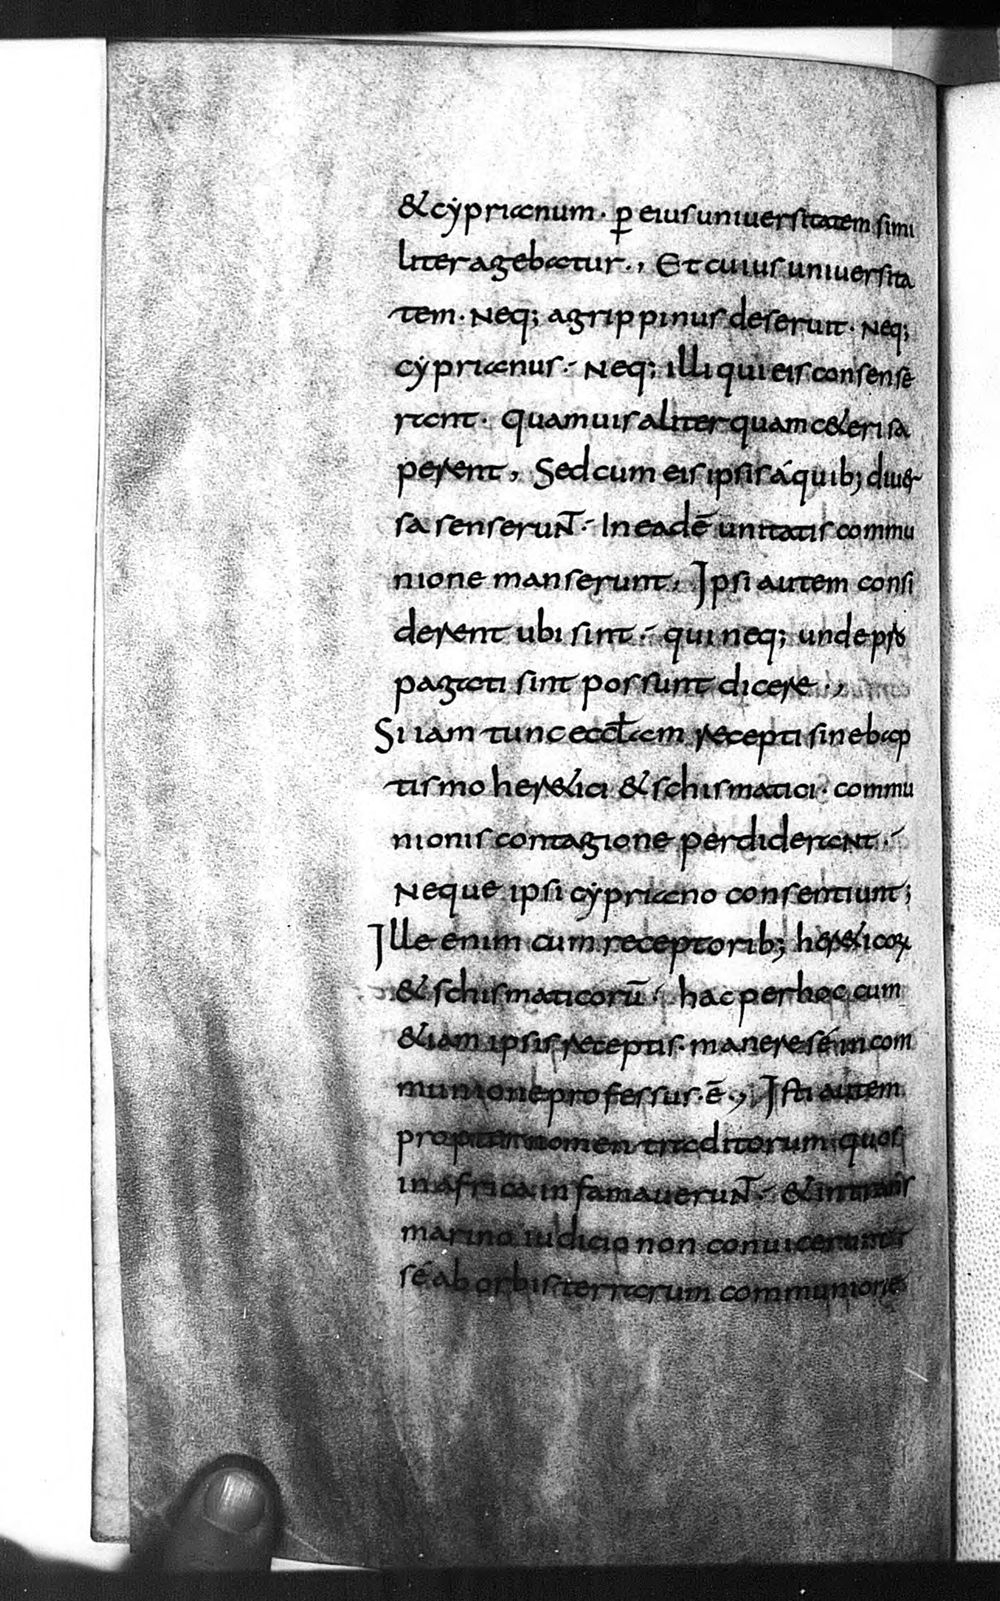 & cẏprianum · ꝑ eius uniuersitatem simi
liter agebatur ·, Et cuius uniuersita
tem · Neq; agrippinus deseruit · Neq;
cẏprianus ·· Neq; illi qui eis consense
rant · Quamuis aliter quam c&eri sa
perent, Sed cum eis ipsis áquib; diuer
sa senserunt̄ ·· In eadē unitatis commu
nione manserunt, Ipsi autem consi
derent ubi sint ·· qui neq; unde pro
pagati sint possunt dicere ·,
Si iam tunc eccłam recepti sine bap
tismo her&ici & schismatici · commu
nionis contagione perdiderant ··
Neque ipsi cẏpriano consentiunt;
Ille enim cum receptorib; her&icoꝝ
& schismaticorū · hac per hoc cum
&iam ipsis receptis · manere sé in com
munione professus · ē ·, Isti autem
propter nomen traditorum quos
in africa infamauerunt̄ ·· & in trans
marino iudicio non conuicerunt
sé ab orbis terrarum communione